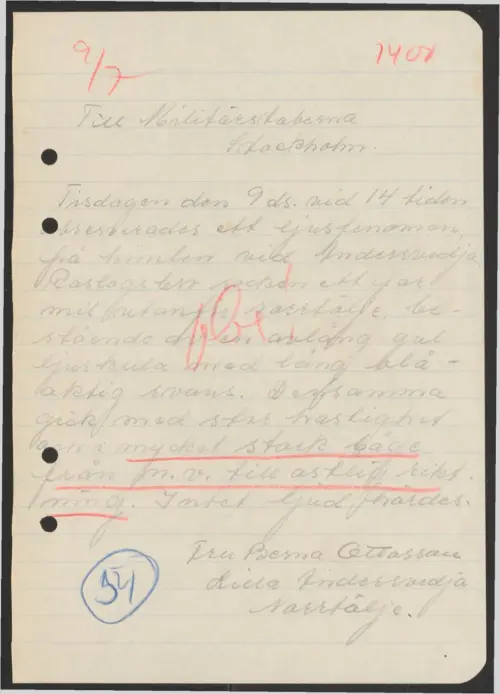 9/7
1400
Till Militärstaberna
Stockholm.
Tisdagen den 9 ds. vid 14 tiden
observerades ett ljusfenomen,
på himlen vid Andersvedja
Roslagsbro socken ett par
mil utanför Norrtälje, be-
stående av en avlång gul
ljuskula med lång blå-
aktig svans. Densamma
gick med stor hastighet
och i mycket stark båge
från n.v. till ostlig rikt-
ning. Intet ljud hördes.
Fru Berna Ottosson
Lilla Andersvedja
Norrtälje.